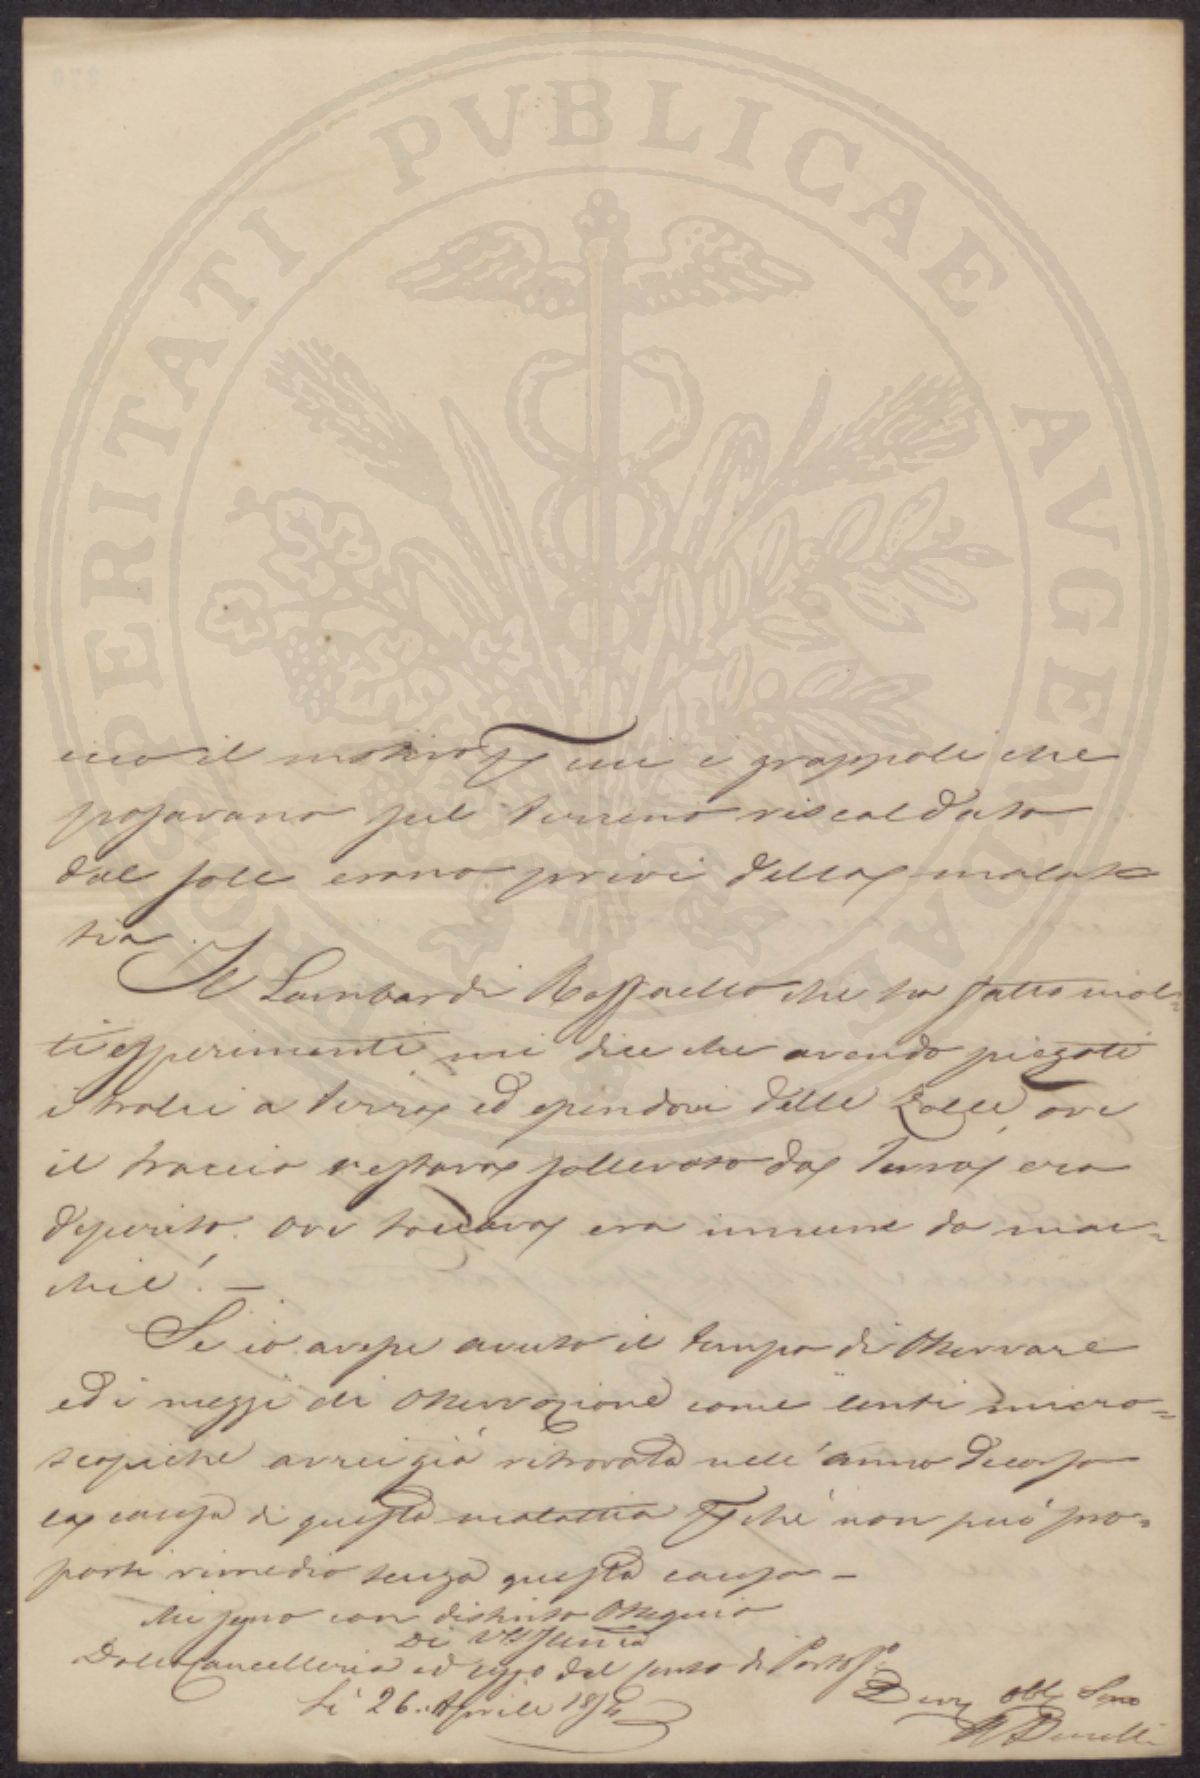 PROSPERITATI PUBLICAE AVGENDAE
il motivo cui i grappoli che
posavano sul terreno riscaldato
dal sole erano privi della malat=
tia.
Il Lambardi Raffaello che ha fatto mol=
ti esperimenti mi dice che avendo piegati
i tralci a terra, ed essendovi delle zolle, ove
il traccio restava sollevato da terra, era
deperito. ove toccava era immune da mac=
chie! —
Se io avesse avuto il tempo di osservare
ed i mezzi di osservazione come lenti micro=
scopiche avrei già ritrovata nell'anno decorso
la causa di questa malattia chè non può pro=
porsi rimedio senza questa causa —
Mi segno con distinto ossequio
Di VS Illma
Dalla Cancelleria ed uffo del porto di
Li 26. Aprile
Devmo obbmo Servo